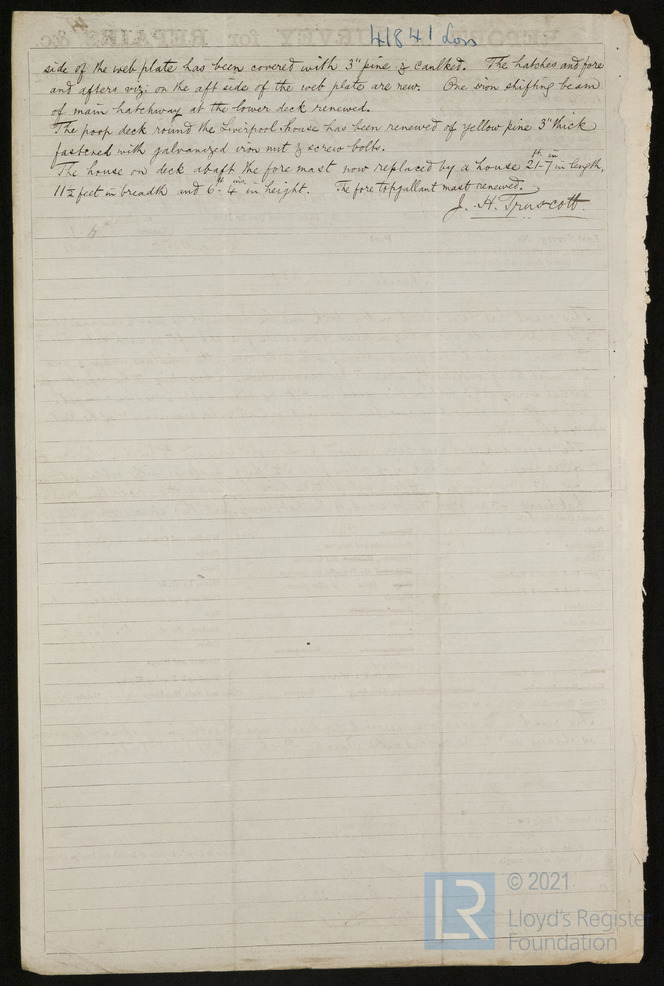 41841 Lon
side of the web plate has been covered with 3" pine & caulked. The hatches and fore
and afters viz: on the aft side of the web plate are new. One iron shifting beam
of main hatchway at the lower deck renewed.
The poop deck round the Liverpool house has been renewed of yellow pine 3" thick
fastened with galvanized iron nut & screw bolts.
The house on deck abaft the fore mast now replaced by a house 21ft-7in in length,
11½ feet in breadth and 6ft-4ins in height. The fore topgallant mast renewed.
J. H. Truscott
© 2021
LR
Lloyd's Register
Foundation